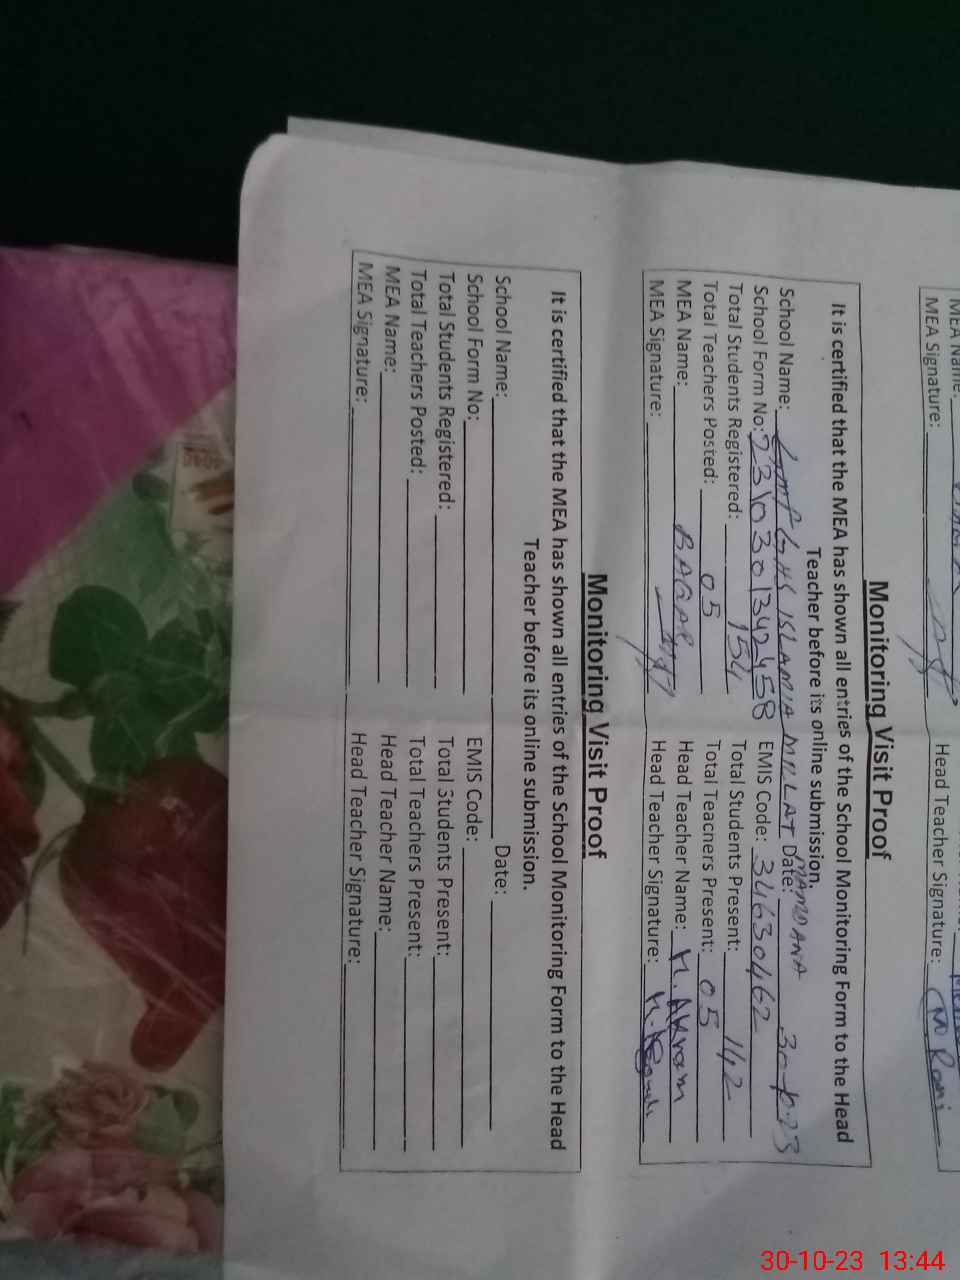 MEA Name:
MEA Signature: Head Teacher Signature: M Rani
Monitoring Visit Proof
It is certified that the MEA has shown all entries of the School Monitoring Form to the Head
Teacher before its online submission.
School Name: GMP GHS ISLAMIA MILLAT MAMDANA Date: 30-10-23
School Form No: 2310301342458 EMIS Code: 34630462
Total Students Registered: 154 Total Students Present: 142
Total Teachers Posted: 05 Total Teachers Present: 05
MEA Name: BAQAR Head Teacher Name: M. Akram
MEA Signature: Head Teacher Signature:
Monitoring Visit Proof
It is certified that the MEA has shown all entries of the School Monitoring Form to the Head
Teacher before its online submission.
School Name: Date:
School Form No: EMIS Code:
Total Students Registered: Total Students Present:
Total Teachers Posted: Total Teachers Present:
MEA Name: Head Teacher Name:
MEA Signature: Head Teacher Signature:
30-10-23 13:44